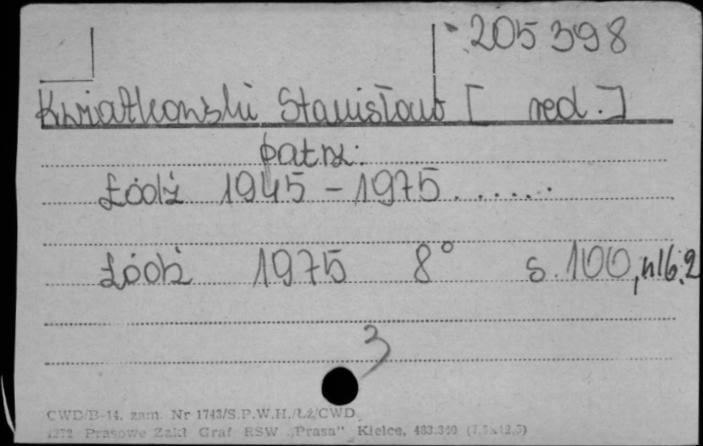 205398
Kwiatkowski Stanisław [ red.]
patrz:
Łódź 1945-1975.......
Łódź 1975 8° s. 100, nlb. 2
3
CWD/B-14. zam. Nr 1743/S.P.W.H./Łź/CWD.
1272 Prasowe Zakł Graf RSW „Prasa" Kielce, 483.340 (7,5x12,5)